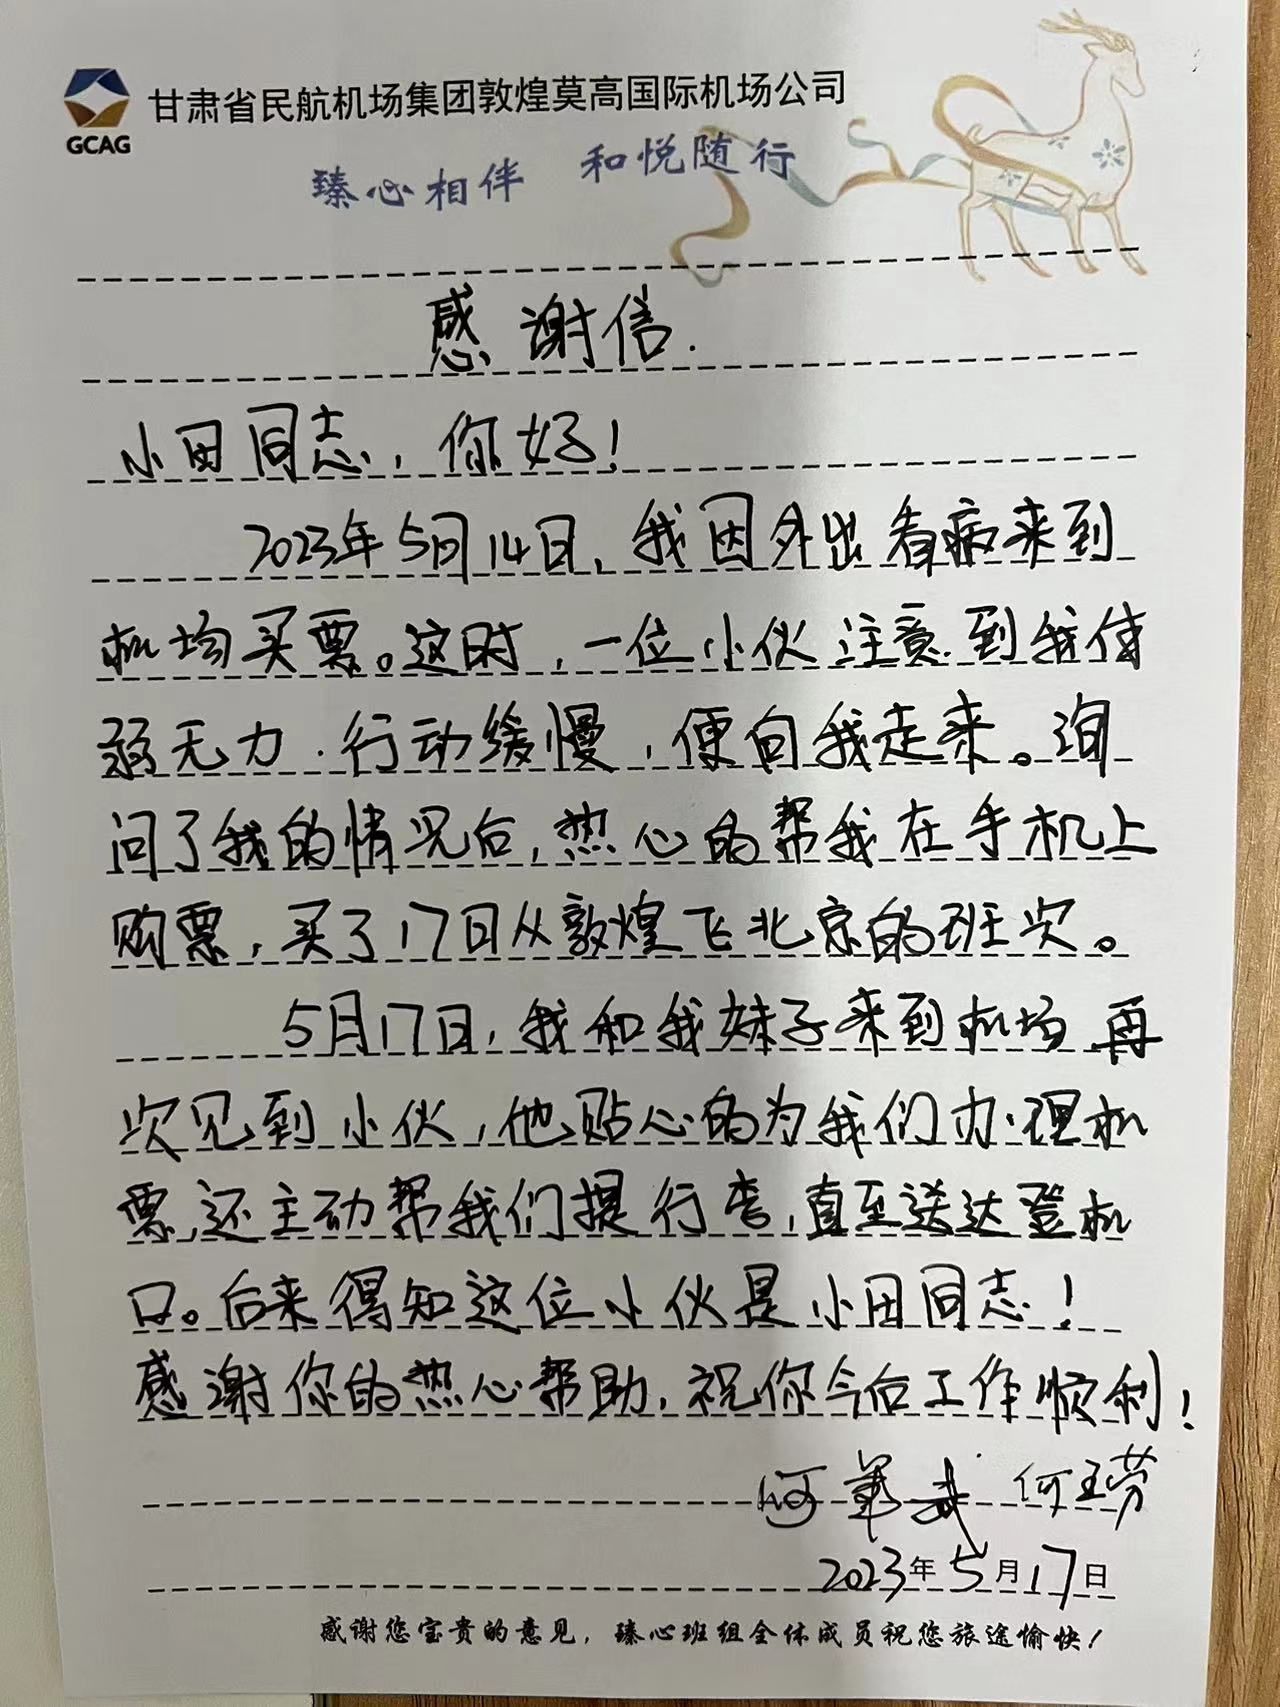 GCAG
甘肃省民航机场集团敦煌莫高国际机场公司
臻心相伴 和悦随行
感谢信.
小田同志,你好!
2023年5月14日,我因外出看病来到
机场买票。这时,一位小伙注意到我体
弱无力.行动缓慢,便向我走来。询
问了我的情况后,热心的帮我在手机上
购票,买了17日从敦煌飞北京的班次。
5月17日,我和我妹子来到机场再
次见到小伙,他贴心的为我们办理机
票,还主动帮我们提行李,直至送达登机
口。后来得知这位小伙是小田同志!
感谢你的热心帮助,祝你今后工作顺利!
何 何玉芳
2023年5月17日
感谢您宝贵的意见,臻心班组全体成员祝您旅途愉快!